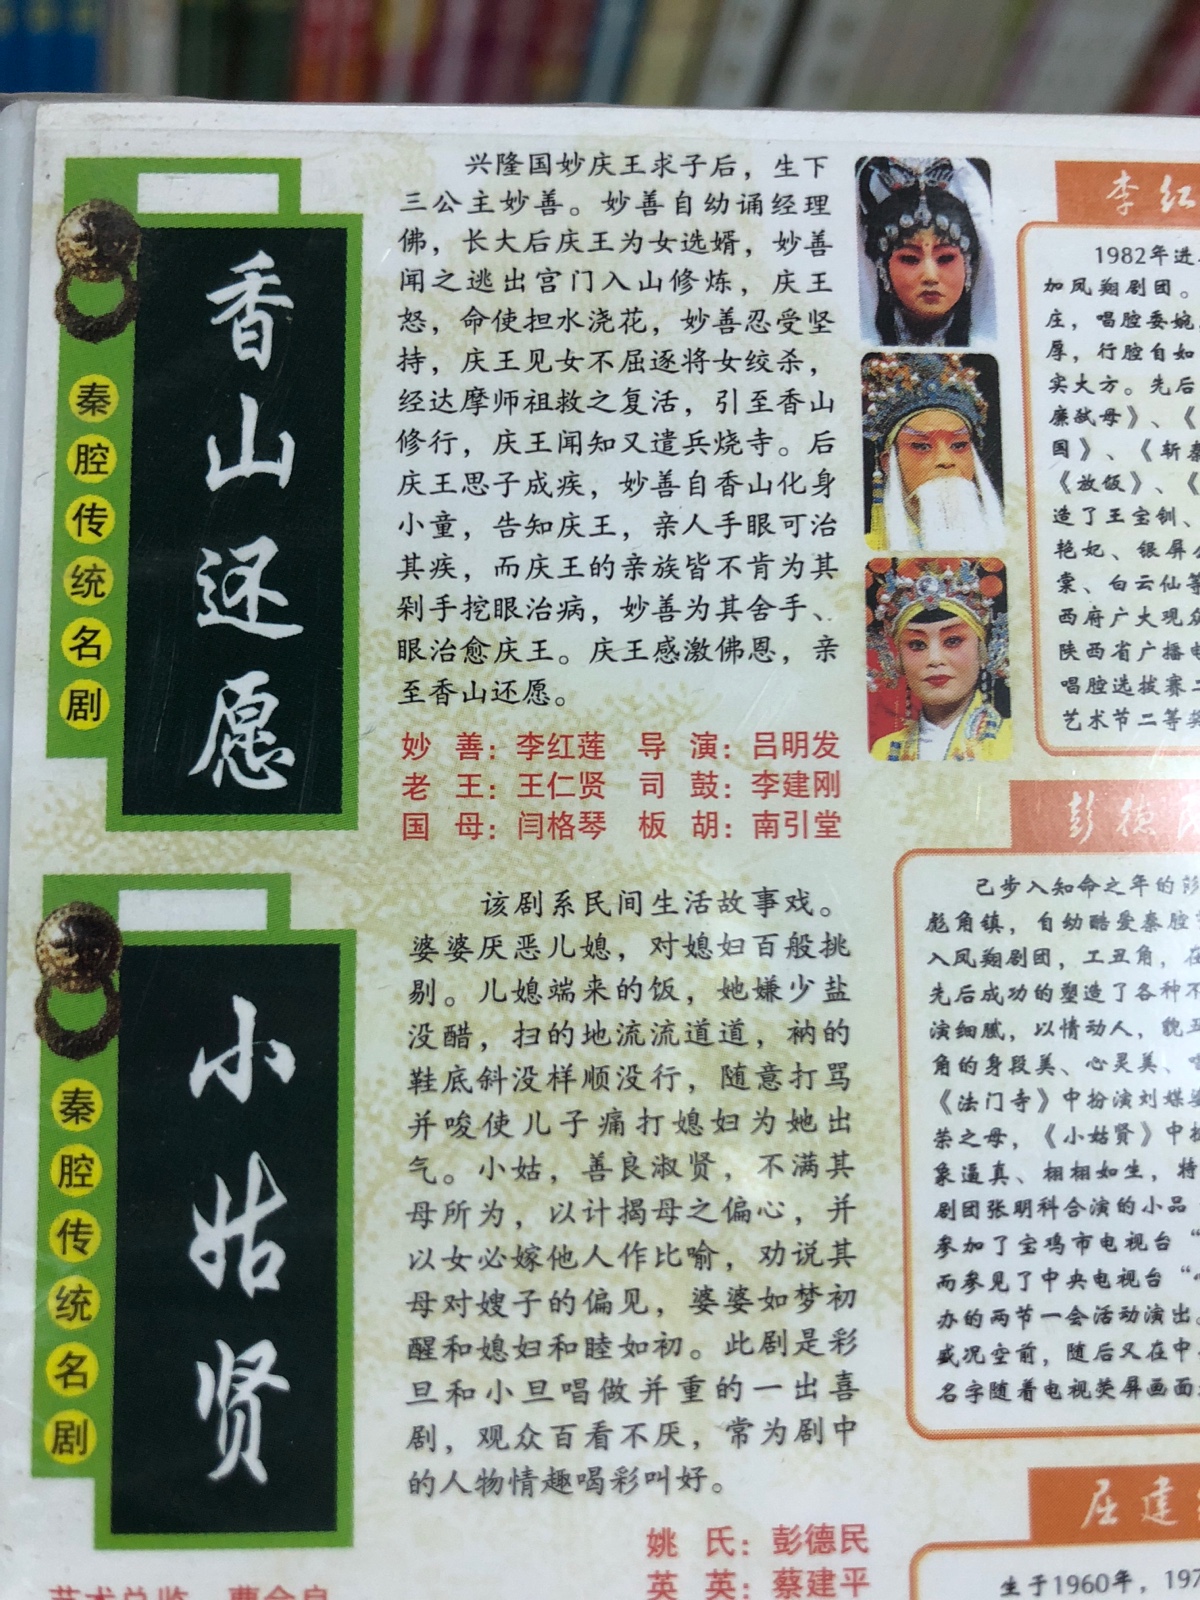 秦腔传统名剧
香山还愿
兴隆国妙庆王求子后，生下
三公主妙善。妙善自幼诵经理
佛，长大后庆王为女选婿，妙善
闻之逃出宫门入山修炼，庆王
怒，命使担水浇花，妙善忍受坚
持，庆王见女不屈逐将女绞杀，
经达摩师祖救之复活，引至香山
修行，庆王闻知又遣兵烧寺。后
庆王思子成疾，妙善自香山化身
小童，告知庆王，亲人手眼可治
其疾，而庆王的亲族皆不肯为其
剁手挖眼治病，妙善为其舍手、
眼治愈庆王。庆王感激佛恩，亲
至香山还愿。
妙 善：李红莲 导 演：吕明发
老 王：王仁贤 司 鼓：李建刚
国 母：闫格琴 板 胡：南引堂
秦腔传统名剧
小姑贤
该剧系民间生活故事戏。
婆婆厌恶儿媳，对媳妇百般挑
剔。儿媳端来的饭，她嫌少盐
没醋，扫的地流流道道，衲的
鞋底斜没样顺没行，随意打骂
并唆使儿子痛打媳妇为她出
气。小姑，善良淑贤，不满其
母所为，以计揭母之偏心，并
以女必嫁他人作比喻，劝说其
母对嫂子的偏见，婆婆如梦初
醒和媳妇和睦如初。此剧是彩
旦和小旦唱做并重的一出喜
剧，观众百看不厌，常为剧中
的人物情趣喝彩叫好。
姚 氏：彭德民
英 英：蔡建平
李红
1982年进
加凤翔剧团。
庄，唱腔委婉
厚，行腔自如
实大方。先后
廉弑母》、《
国》、《斩秦
《放饭》、《
造了王宝钏、
艳妃、银屏公
棠、白云仙等
西府广大观众
陕西省广播电
唱腔选拔赛二
艺术节二等奖
彭德民
已步入知命之年的彭
彪角镇，自幼酷爱秦腔
入凤翔剧团，工丑角，在
先后成功的塑造了各种不
演细腻，以情动人，貌丑
角的身段美、心灵美、唱
《法门寺》中扮演刘媒婆
荣之母，《小姑贤》中扮
象逼真、栩栩如生，特
剧团张明科合演的小品
参加了宝鸡市电视台“
而参见了中央电视台“
办的两节一会活动演出。
盛况空前，随后又在中
名字随着电视荧屏画面
屈建
生于1960年，197